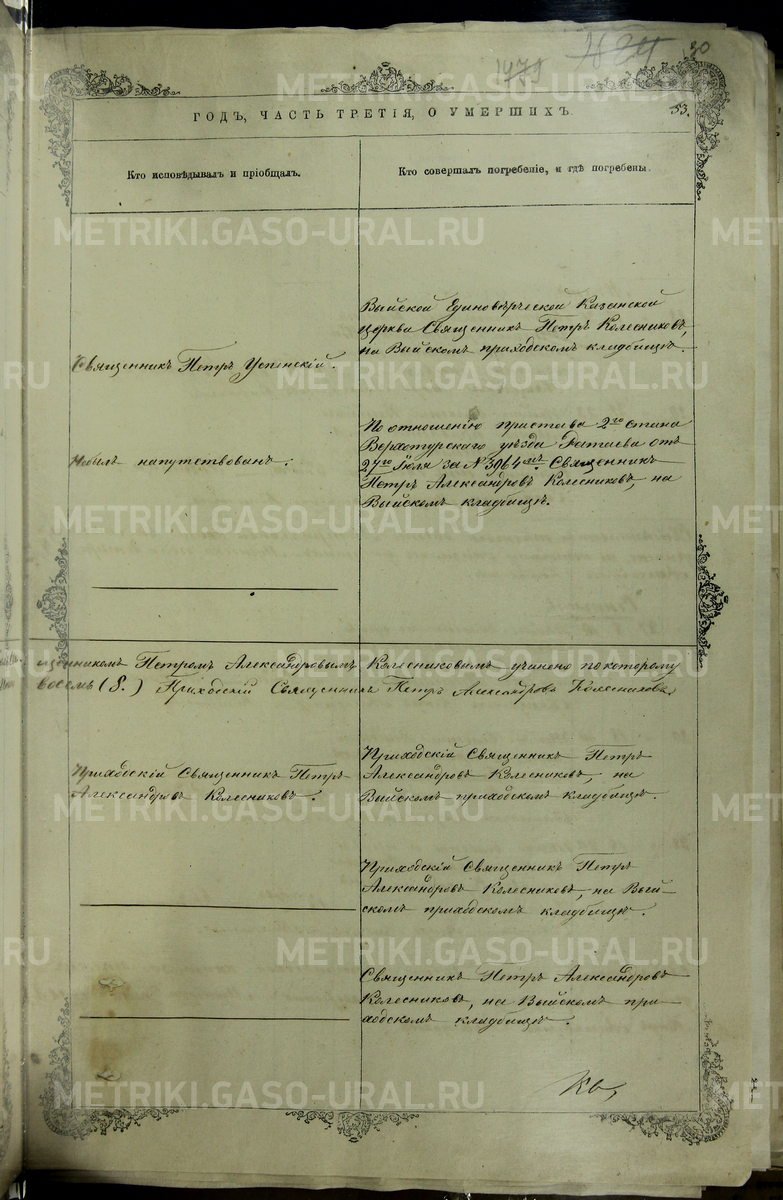 30
1479
ГОДЪ, ЧАСТЬ ТРЕТІЯ, О УМЕРШИХЪ.
33.
Кто исповѣдывалъ и пріобщалъ.
Кто совершалъ погребеніе, и гдѣ погребены.
Выйской Единовѣрческой Казанской
церкви Священникъ Петръ Колесниковъ,
на Выйскомъ приходскомъ кладбищѣ.
Священникъ Петръ Успенскій.
По отношенію пристава 2го стана
Верхотурскаго уѣзда отъ
27го Іюля за № 3964мъ. Священникъ
Петръ Александровъ Колесниковъ, на
Выйскомъ кладбищѣ.
Небылъ напутствованъ.
щенникомъ Петромъ Александровымъ Колесниковымъ учинено покоторому
восемь (8.) Приходскій Священникъ Петръ Александровъ Колесниковъ
Приходскій Священникъ Петръ
Александровъ Колесниковъ.
Приходскій Священникъ Петръ
Александровъ Колесниковъ, на
Выйскомъ приходскомъ кладбищѣ.
Приходскій Священникъ Петръ
Александровъ Колесниковъ, на Вый-
скомъ приходскомъ кладбищѣ.
Священникъ Петръ Александровъ
Колесниковъ, на Выйскомъ при-
ходскомъ кладбищѣ.
METRIKI.GASO-URAL.RU